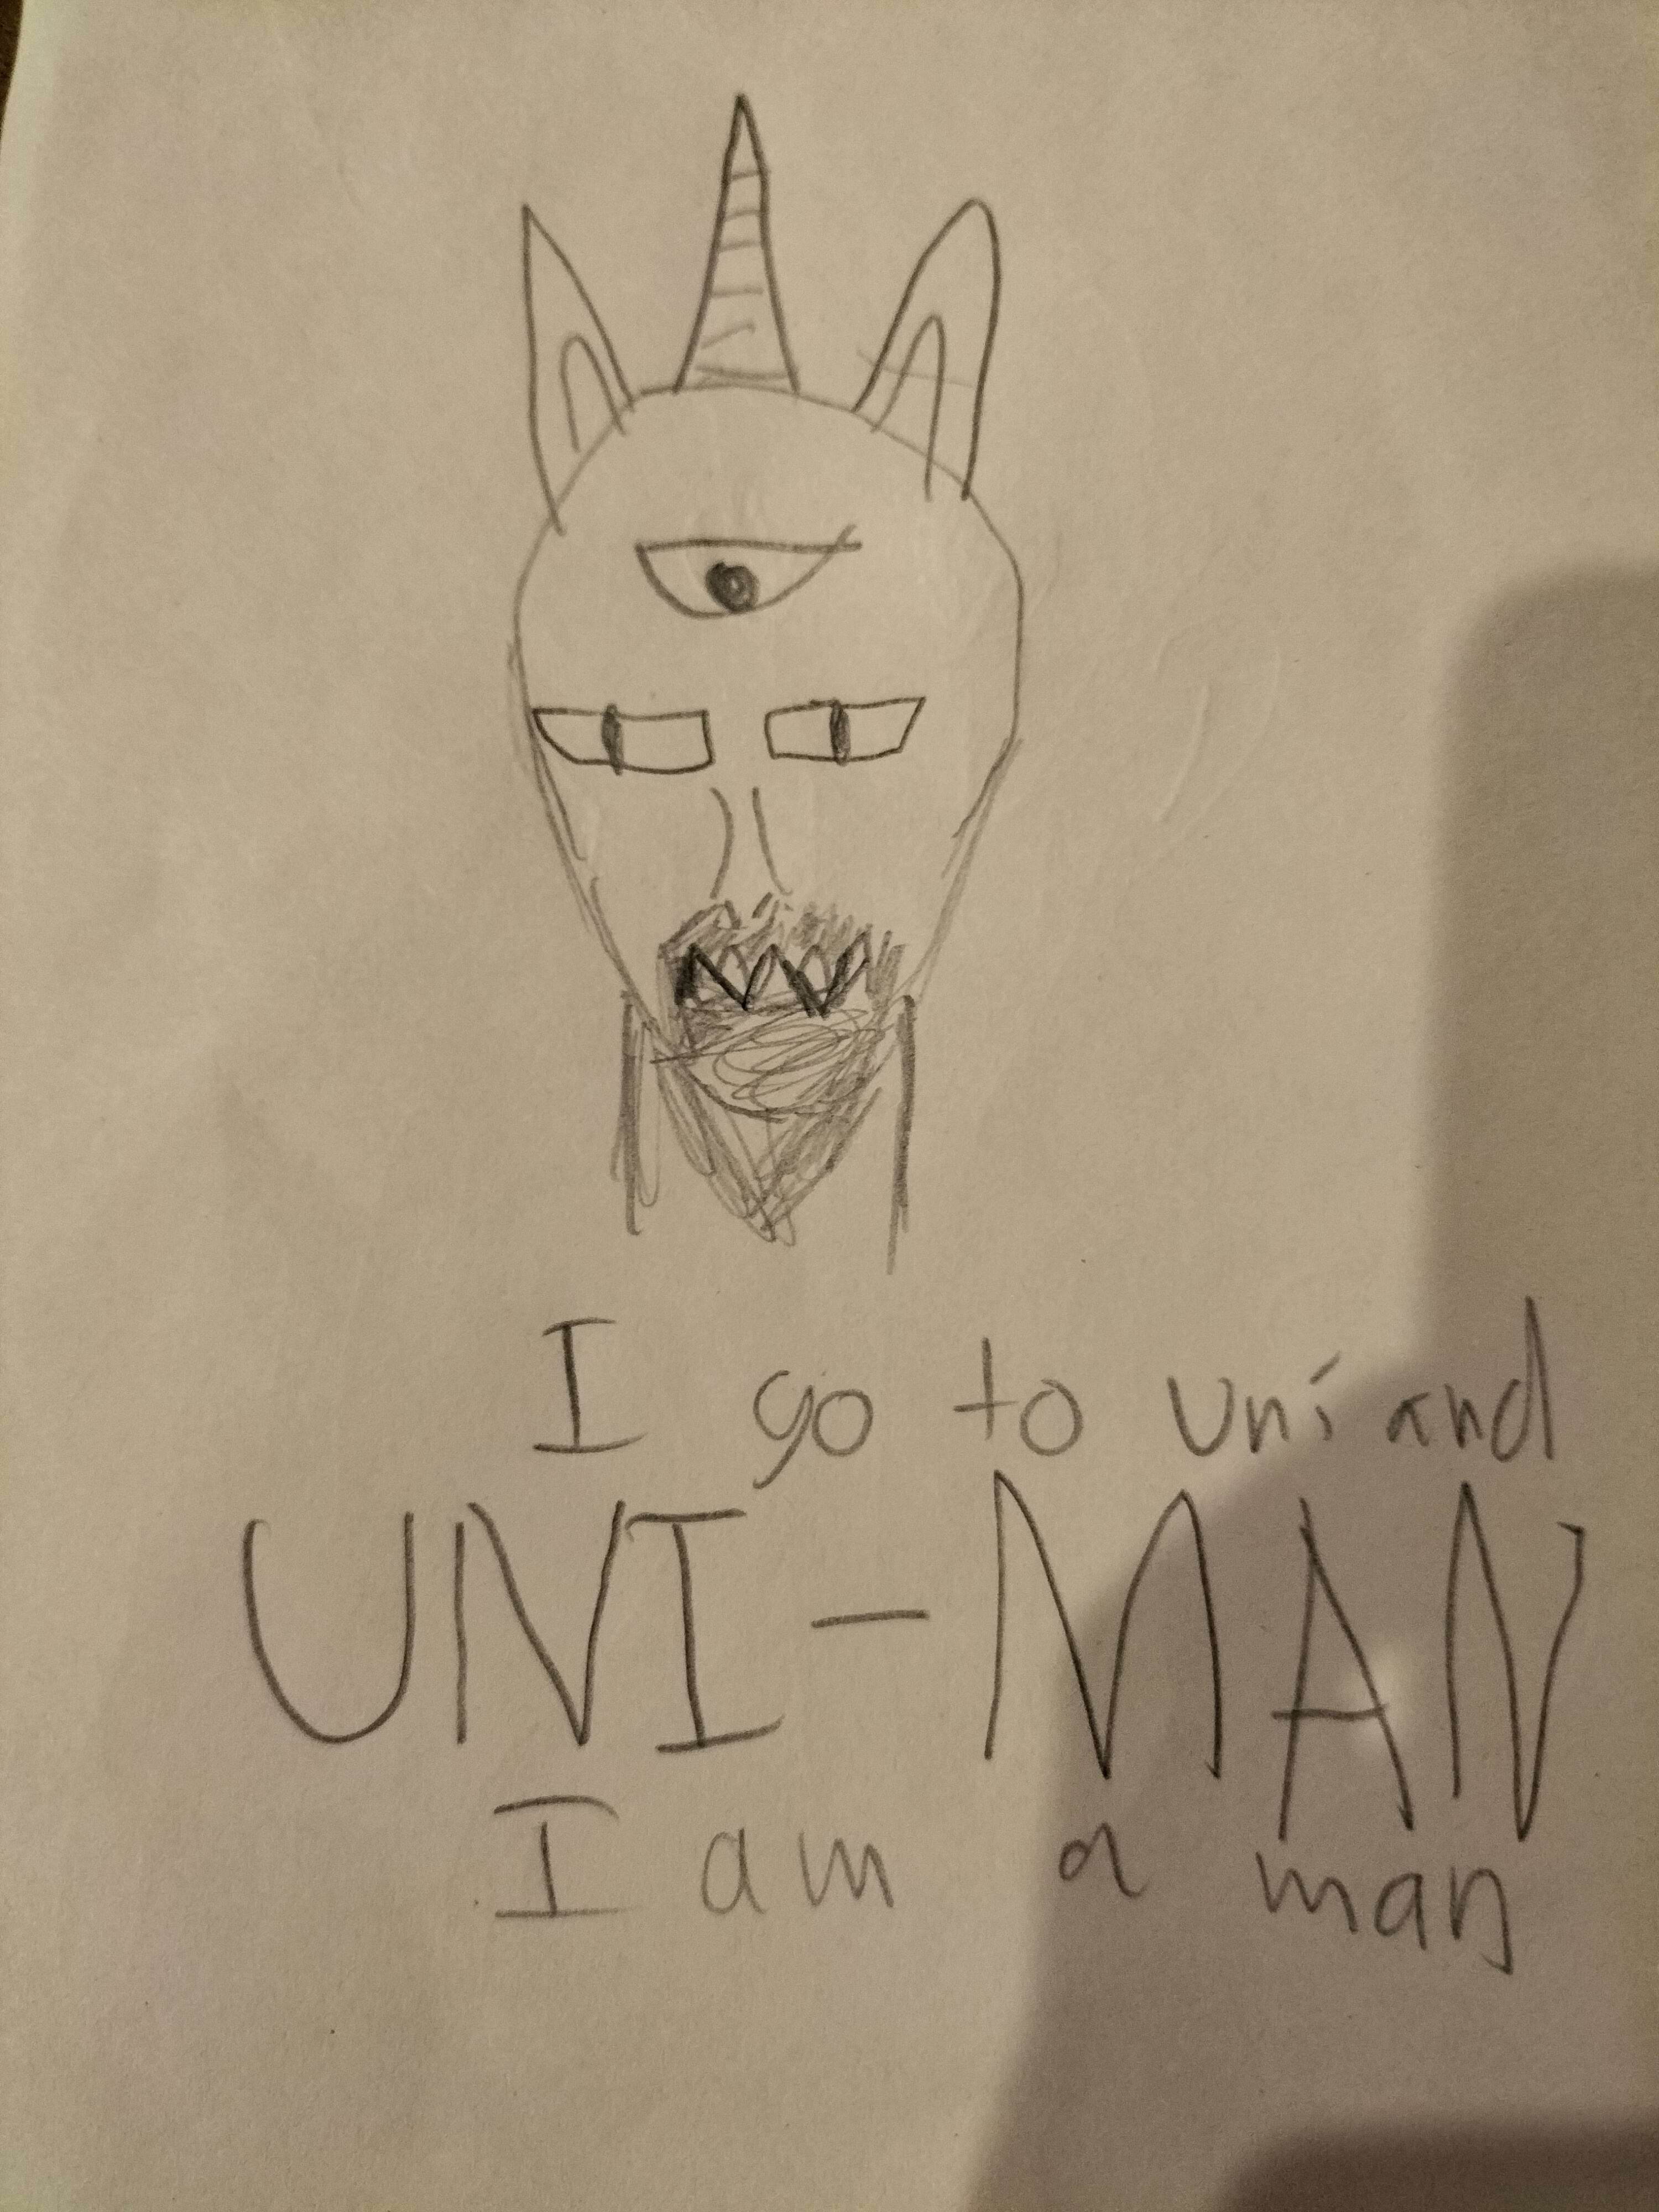 I go to uni and
UNI-MAN
I am a man